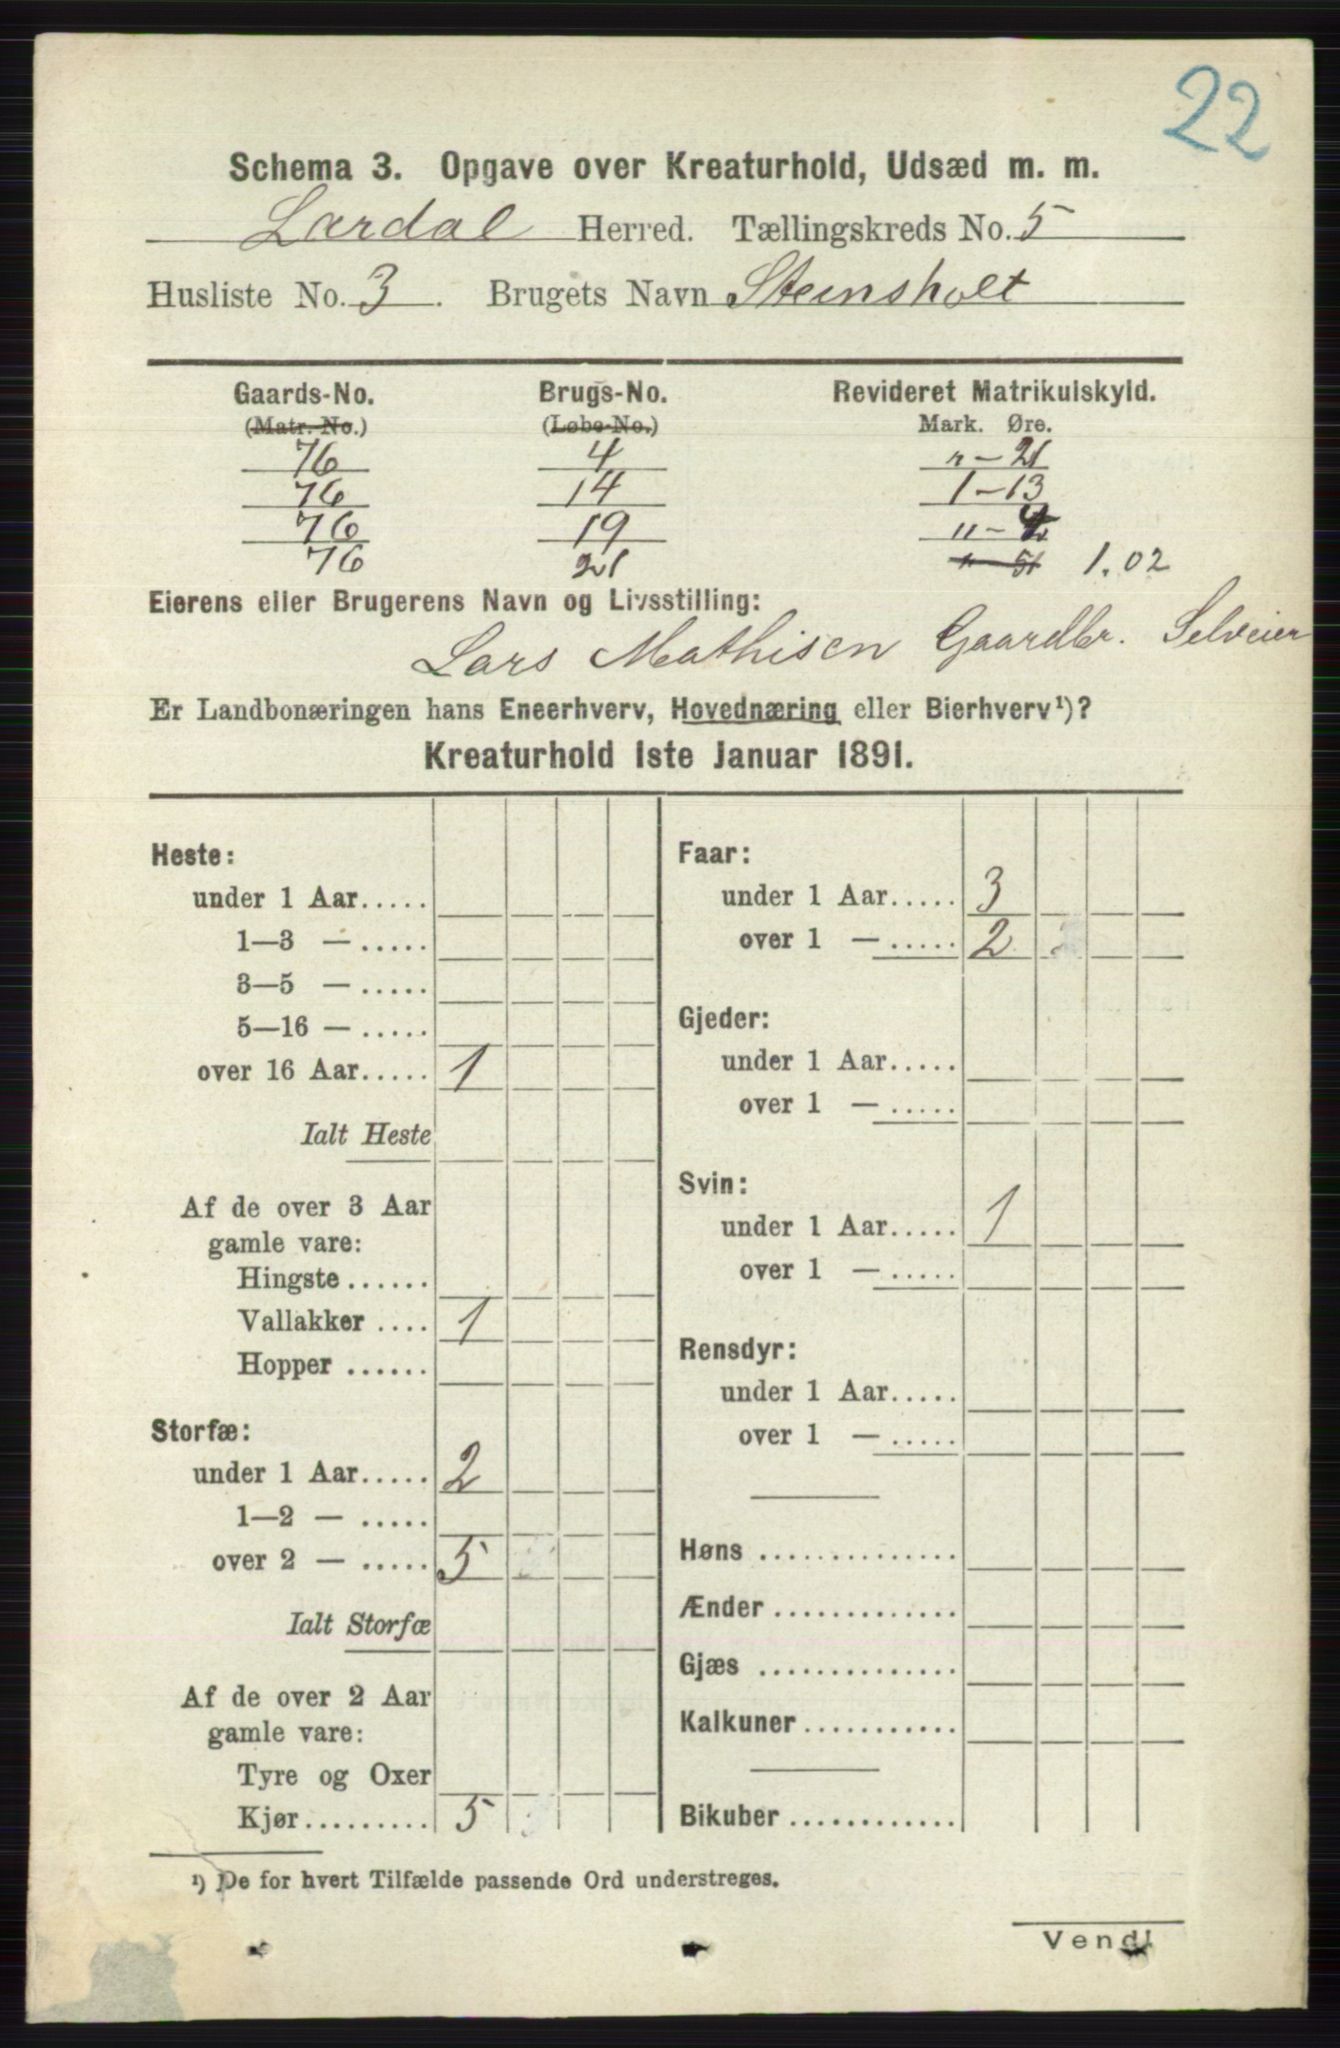 22
Schema 3. Opgave over Kreaturhold, Udsæd m. m.
Lardal Herred. Tællingskreds No. 5
Husliste No. 3. Brugets Navn Steinsholt
Gaards-No. Brugs-No. Revideret Matrikulskyld.
(Matr. No.) (Løbe-No.) Mark. Øre.
76 4 " - 21
76 14 1 - 13
76 19 " -
76 21 " 51 1.02
Eierens eller Brugerens Navn og Livsstilling:
Lars Mathisen Gaardbr. Selveier
Er Landbonæringen hans Eneerhverv, Hovednæring eller Bierhverv¹)?
Kreaturhold 1ste Januar 1891.
Heste:
under 1 Aar.....
1—3 — .....
3—5 — .....
5—16 — .....
over 16 Aar..... 1
Ialt Heste
Af de over 3 Aar
gamle vare:
Hingste ......
Vallakker .... 1
Hopper ......
Storfæ:
under 1 Aar..... 2
1—2 — .....
over 2 — ..... 5
Ialt Storfæ
Af de over 2 Aar
gamle vare:
Tyre og Oxer
Kjør......... 5
Faar:
under 1 Aar..... 3
over 1 — ..... 2
Gjeder:
under 1 Aar.....
over 1 — .....
Svin:
under 1 Aar..... 1
over 1 — .....
Rensdyr:
under 1 Aar.....
over 1 — .....
Høns ..............
Ænder .............
Gjæs ..............
Kalkuner ...........
Bikuber ............
¹) De for hvert Tilfælde passende Ord understreges.
Vend!